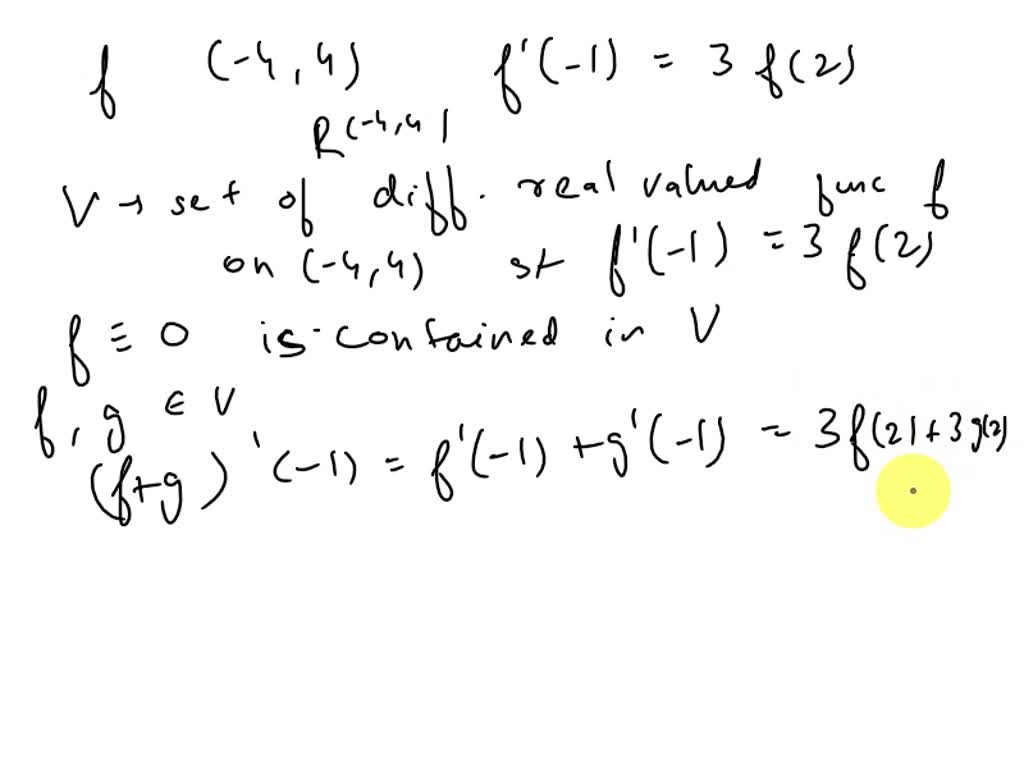 f (-4,4) f'(-1) = 3 f(2)
R^(-4,4)
V → set of diff. real valued func f
on (-4,4) st f'(-1) = 3 f(2)
f ≡ 0 is contained in V
f, g ∈ V
(f+g)'(-1) = f'(-1) + g'(-1) = 3f(2) + 3g(2)